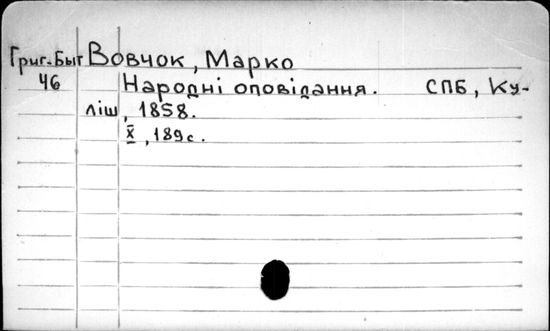 Григ.-Быт Вовчок, Марко
46 Народні оповідання. СПБ, Ку-
ліш, 1858.
X, 189с.